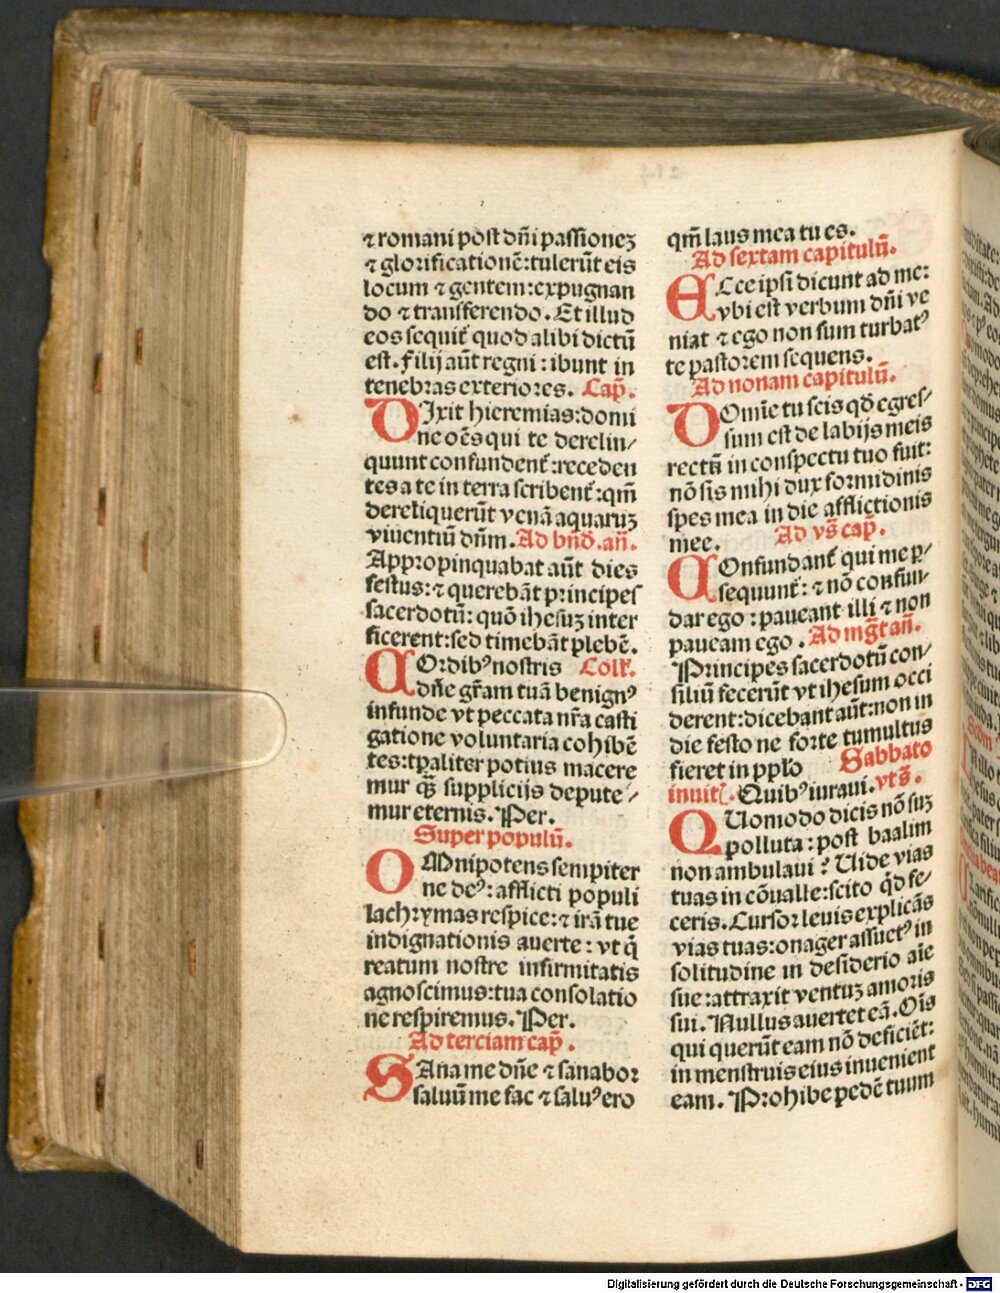 ⁊ romani post dn̄i passionez
⁊ glorificationē: tulerūt eis
locum ⁊ gentem: expugnan
do ⁊ transferendo. Et illud
eos sequit̄ quod alibi dictū
est. Filij aūt regni: ibunt in
tenebras exteriores. Cap̄.
DIxit hieremias: domi
ne oēs qui te derelin⸗
quunt confundent̄: receden
tes a te in terra scribent̄: qm̄
dereliquerūt venā aquaruz
viuentiū dn̄m. Ad bn̄d. an̄.
Appropinquabat aūt dies
festus: ⁊ querebāt principes
sacerdotū: quō ihesuz inter
ficerent: sed timebāt plebē.
COrdibꝰ nostris Coll'.
dn̄e gr̄am tuā benignꝰ
infunde vt peccata nr̄a casti
gatione voluntaria cohibē
tes: tp̄aliter potius macere
mur q̄ꝫ supplicijs depute⸗
mur eternis. Per.
Super populū.
OMnipotens sempiter
ne deꝰ: afflicti populi
lachrymas respice: ⁊ irā tue
indignationis auerte: vt q̄
reatum nostre infirmitatis
agnoscimus: tua consolatio
ne respiremus. Per.
Ad terciam cap̄.
SAna me dn̄e ⁊ sanabor
saluū me fac ⁊ saluꝰ ero
qm̄ laus mea tu es.
Ad sextam capitulū.
ECce ipsi dicunt ad me:
vbi est verbum dn̄i ve
niat ⁊ ego non sum turbatꝰ
te pastorem sequens.
Ad nonam capitulū.
DOmīe tu scis qd̄ egres⸗
sum est de labijs meis
rectū in conspectu tuo fuit:
nō sis mihi dux formidinis
spes mea in die afflictionis
mee. Ad vs̄ cap̄.
COnfundant̄ qui me p̱⸗
sequunt̄: ⁊ nō confun⸗
dar ego: paueant illi ⁊ non
paueam ego. Ad mḡt an̄.
Principes sacerdotū con⸗
siliū fecerūt vt ihesum occi
derent: dicebant aūt: non in
die festo ne forte tumultus
fieret in pp̄lo Sabbato
inuit̄. Quibꝰ iuraui. vt s̄.
QUomodo dicis nō suz
polluta: post baalim
non ambulaui? Uide vias
tuas in cōualle: scito qd̄ fe⸗
ceris. Cursor leuis explicās
vias tuas: onager assuetꝰ in
solitudine in desiderio aīe
sue: attraxit ventuz amoris
sui. Nullus auertet eā. Oīs
qui querūt eam nō deficiēt:
in menstruis eius inuenient
eam. Prohibe pedē tuum
Digitalisierung gefördert durch die Deutsche Forschungsgemeinschaft - DFG